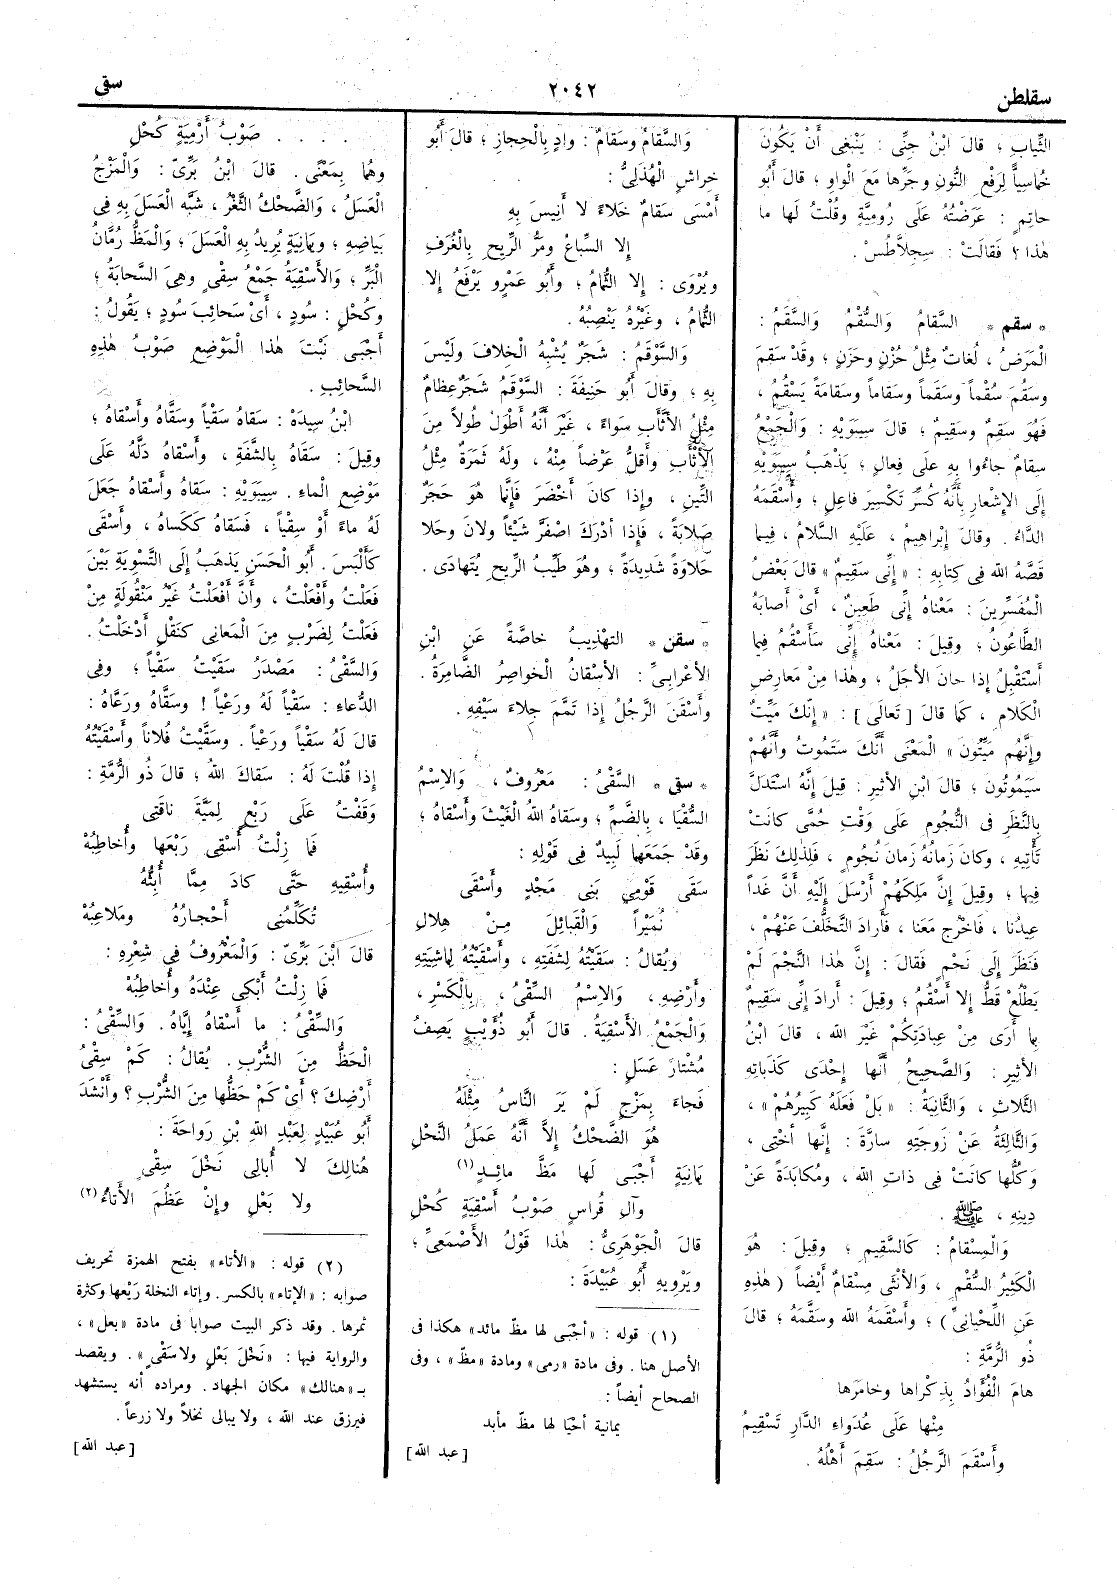 سقلطن
٢٠٤٢
سقى
الثِّيابِ ؛ قالَ ابْنُ جِنِّى : يَنْبَغِى أَنْ يَكُونَ
خُماسِيًّا لِرَفْعِ النُّونِ وجَرِّها مَعَ الْواوِ ؛ قالَ أَبُو
حاتِمٍ : عَرَضْتُهُ عَلَى رُومِيَّةٍ وقُلْتُ لَها ما
هٰذا ؟ فَقالَتْ : سِجِلاَّطُسْ .
* سقم * السَّقامُ والسُّقْمُ والسَّقَمُ :
الْمَرَضُ ، لُغاتٌ مِثْلُ حُزْنٍ وحَزَنٍ ؛ وقَدْ سَقِمَ
وسَقُمَ سُقْماً وسَقَماً وسَقاماً وسَقامَةً يَسْقُمُ ،
فَهُوَ سَقِمٌ وسَقِيمٌ ؛ قالَ سِيبَوَيْهِ : والْجَمْعُ
سِقامٌ جاءُوا بِهِ عَلَى فِعالٍ ؛ يَذْهَبُ سِيبَوَيْهِ
إِلَى الإِشْعارِ بِأَنَّهُ كُسِّرَ تَكْسِيرَ فاعِلٍ ؛ وأَسْقَمَهُ
الدَّاءُ . وقالَ إِبْراهِيمُ ، عَلَيْهِ السَّلامُ ، فِيما
قَصَّهُ الله فى كِتابِهِ : « إِنِّى سَقِيمٌ » قالَ بَعْضُ
الْمُفَسِّرِينَ : مَعْناهُ إِنِّى طَعِينٌ ، أَىْ أَصابَهُ
الطَّاعُونُ ؛ وقِيلَ : مَعْناهُ إِنِّى سَأَسْقُمُ فِيما
أَسْتَقْبِلُ إِذا حانَ الأَجَلُ ؛ وهٰذا مِنْ مَعارِيضِ
الْكَلامِ ، كَما قالَ [ تَعالَى ] : « إِنَّكَ مَيِّتٌ
وإِنَّهُم مَيِّتُونَ » الْمَعْنَى أَنَّكَ سَتَمُوتُ وأَنَّهُمْ
سَيَمُوتُونَ ؛ قالَ ابْنُ الأَثِيرِ : قِيلَ إِنَّهُ اسْتَدَلَّ
بِالنَّظَرِ فى النُّجُومِ عَلَى وَقْتِ حُمَّى كانَتْ
تَأْتِيهِ ، وكانَ زَمانُهُ زَمانَ نُجُومٍ ، فَلِذٰلِكَ نَظَرَ
فِيها ؛ وقِيلَ إِنَّ مَلِكَهُمْ أَرْسَلَ إِلَيْهِ أَنَّ غَداً
عِيدُنا ، فَاخْرُجْ مَعَنا ، فَأَرادَ التَّخَلُّفَ عَنْهُمْ ،
فَنَظَرَ إِلَى نَجْمٍ فَقالَ : إِنَّ هٰذا النَّجْمَ لَمْ
يَطْلُعْ قَطُّ إِلا أَسْقُمُ ؛ وقِيلَ : أَرادَ إِنِّى سَقِيمٌ
بِما أَرَى مِنْ عِبادَتِكُمْ غَيْرَ الله ، قالَ ابْنُ
الأَثِيرِ : والصَّحِيحُ أَنَّها إِحْدَى كَذَباتِهِ
الثَّلاثِ ، والثَّانِيَةُ : « بَلْ فَعَلَهُ كَبِيرُهُمْ » ،
والثَّالِثَةُ عَنْ زَوْجَتِهِ سارَّةَ : إِنَّها أُخْتِى ،
وكُلُّها كانَتْ فى ذاتِ الله ، ومُكابَدَةً عَنْ
دِينِهِ ، ﷺ .
والْمِسْقامُ : كَالسَّقِيمِ ؛ وقِيلَ : هُوَ
الْكَثِيرُ السُّقْمِ ، والأُنْثَى مِسْقامٌ أَيْضاً ( هٰذِهِ
عَنِ اللِّحْيانِىِّ ) ؛ وأَسْقَمَهُ الله وسَقَّمَهُ ؛ قالَ
ذُو الرُّمَّةِ :
هامَ الْفُؤَادُ بِذِكْراها وخامَرَها
مِنْها عَلَى عُدَواءِ الدَّارِ تَسْقِيمُ
وأَسْقَمَ الرَّجُلُ : سَقِمَ أَهْلُهُ .
والسَّقامُ وسَقامٌ : وادٍ بِالْحِجازِ ؛ قالَ أَبُو
خِراشٍ الْهُذَلِىُّ :
أَمْسَى سَقامٌ خَلاءً لا أَنِيسَ بِهِ
إِلا السِّباعُ ومَرُّ الرِّيحِ بِالْغُرَفِ
ويُرْوَى : إِلا الثُّمامُ ؛ وأَبُو عَمْرٍو يَرْفَعُ إِلا
الثُّمامُ ، وغَيْرُهُ يَنْصِبُهُ .
والسَّوْقَمُ : شَجَرٌ يُشْبِهُ الْخِلافَ ولَيْسَ
بِهِ ؛ وقالَ أَبُو حَنِيفَةَ : السَّوْقَمُ شَجَرٌ عِظامٌ
مِثْلُ الأَثْأَبِ سَواءً ، غَيْرَ أَنَّهُ أَطْوَلُ طُولاً مِنَ
الأَثْأَبِ وأَقَلُّ عَرْضاً مِنْهُ ، ولَهُ ثَمَرَةٌ مِثْلُ
التِّينِ ، وإِذا كانَ أَخْضَرَ فَإِنَّما هُوَ حَجَرٌ
صَلابَةً ، فَإِذا أَدْرَكَ اصْفَرَّ شَيْئاً ولانَ وحَلا
حَلاوَةً شَدِيدَةً ؛ وهُوَ طَيِّبُ الرِّيحِ يُتَهادَى .
* سقن * التهْذِيبُ خاصَّةً عَنِ ابْنِ
الأَعْرابِىِّ : الأَسْقانُ الْخَواصِرُ الضَّامِرَةُ .
وأَسْقَنَ الرَّجُلُ إِذا تَمَّمَ جِلاءَ سَيْفِهِ .
* سقى * السَّقْىُ : مَعْرُوفٌ ، والِاسْمُ
السُّقْيَا ، بِالضَّمِّ ؛ وسَقاهُ اللهُ الْغَيْثَ وأَسْقاهُ ؛
وقَدْ جَمَعَهَا لَبِيدٌ فِى قَوْلِهِ :
سَقَى قَوْمِى بَنِى مَجْدٍ وأَسْقَى
نُمَيْراً والْقَبائِلَ مِنْ هِلالِ
ويُقالُ : سَقَيْتُهُ لِشَفَتِهِ ، وأَسْقَيْتُهُ لِماشِيَتِهِ
وأَرْضِهِ ، والِاسْمُ السِّقْىُ ، بِالْكَسْرِ ،
والْجَمْعُ الأَسْقِيَةُ . قالَ أَبُو ذُؤَيْبٍ يَصِفُ
مُشْتارَ عَسَلٍ :
فَجاءَ بِمَزْجٍ لَمْ يَرَ النَّاسُ مِثْلَهُ
هُوَ الضَّحْكُ إِلاَّ أَنَّهُ عَمَلُ النَّحْلِ
يَمانِيَةٍ أَجْبَى لَها مَظَّ مائِدٍ (١)
وآلِ قُراسٍ صَوْبُ أَسْقِيَةٍ كُحْلِ
قالَ الْجَوْهَرِىُّ : هٰذا قَوْلُ الأَصْمَعِىِّ ؛
ويَرْوِيهِ أَبُو عُبَيْدَةَ :
(١) قوله : «أجْبَى لها مظّ مائد» هكذا فى
الأصل هنا . وفى مادة «رمى» ومادة «مظّ» ، وفى
الصحاح أيضاً :
يمانية أحْيَا لها مظّ مأبد
[عبد الله]
. . . . . صَوْبُ أَرْمِيَةٍ كُحْلِ
وهُما بِمَعْنًى . قالَ ابْنُ بَرِّىّ : والْمَزْجُ
الْعَسَلُ ، والضَّحْكُ الثَّغْرُ ، شَبَّهَ الْعَسَلَ بِهِ فِى
بَياضِهِ ؛ ويَمانِيَةٍ يُرِيدُ بِهِ الْعَسَلَ ؛ والْمَظُّ رُمَّانُ
الْبَرِّ ؛ والأَسْقِيَةُ جَمْعُ سِقْىٍ وهِىَ السَّحابَةُ ؛
وكُحْلٍ : سُودٍ ، أَىْ سَحائِبَ سُودٍ ؛ يَقُولُ :
أَجْبَى نَبْتَ هٰذا الْمَوْضِعِ صَوْبُ هٰذِهِ
السَّحائِبِ .
ابْنُ سِيدَهْ : سَقاهُ سَقْياً وسَقَّاهُ وأَسْقاهُ ؛
وقِيلَ : سَقَاهُ بِالشَّفَةِ ، وأَسْقاهُ دَلَّهُ عَلَى
مَوْضِعِ الْماءِ . سِيبَوَيْهِ : سَقاهُ وأَسْقاهُ جَعَلَ
لَهُ ماءً أَوْ سِقْياً ، فَسَقاهُ كَكَساهُ ، وأَسْقَى
كَأَلْبَسَ . أَبُو الْحَسَنِ يَذْهَبُ إِلَى التَّسْوِيَةِ بَيْنَ
فَعَلْتُ وأَفْعَلْتُ ، وأَنَّ أَفْعَلْتُ غَيْرُ مَنْقُولَةٍ مِنْ
فَعَلْتُ لِضَرْبٍ مِنَ الْمَعانِى كَنَقْلِ أَدْخَلْتُ .
والسَّقْىُ : مَصْدَرُ سَقَيْتُ سَقْياً ؛ وفِى
الدُّعاءِ : سَقْياً لَهُ ورَعْياً ! وسَقَّاهُ ورَعَّاهُ :
قالَ لَهُ سَقْياً ورَعْياً . وسَقَّيْتُ فُلاناً وأَسْقَيْتُهُ
إِذا قُلْتَ لَهُ : سَقاكَ اللهُ ؛ قالَ ذُو الرُّمَّةِ :
وَقَفْتُ عَلَى رَبْعٍ لِمَيَّةَ ناقَتِى
فَما زِلْتُ أُسْقِى رَبْعَها وأُخاطِبُهْ
وأُسْقِيهِ حَتَّى كادَ مِمَّا أَبُثُّهُ
تُكَلِّمُنِى أَحْجارُهُ ومَلاعِبُهْ
قالَ ابْنُ بَرِّىّ : والْمَعْرُوفُ فِى شِعْرِهِ :
فَما زِلْتُ أَبْكِى عِنْدَهُ وأُخاطِبُهْ
والسِّقْىُ : ما أَسْقاهُ إِيَّاهُ . والسِّقْىُ :
الْحَظُّ مِنَ الشُّرْبِ . يُقالُ : كَمْ سِقْىُ
أَرْضِكَ ؟ أَىْ كَمْ حَظُّها مِنَ الشُّرْبِ ؟ وأَنْشَدَ
أَبُو عُبَيْدٍ لِعَبْدِ اللهِ بْنِ رَواحَةَ :
هُنالِكَ لا أُبالِى نَخْلَ سِقْىٍ
ولا بَعْلٍ وإِنْ عَظُمَ الأَتاءُ (٢)
(٢) قوله : «الأتاء» بفتح الهمزة تحريف
صوابه : «الإتاء» بالكسر . وإتاء النخلة رَيْعها وكثرة
ثمرها . وقد ذكر البيت صواباً فى مادة «بعل» ،
والرواية فيها : «نَخْلَ بَعْلٍ ولا سَقْىٍ» . ويقصد
بـ«هنالك» مكان الجهاد . ومراده أنه يستشهد
فيرزق عند الله ، ولا يبالى نخلاً ولا زرعاً .
[عبد الله]